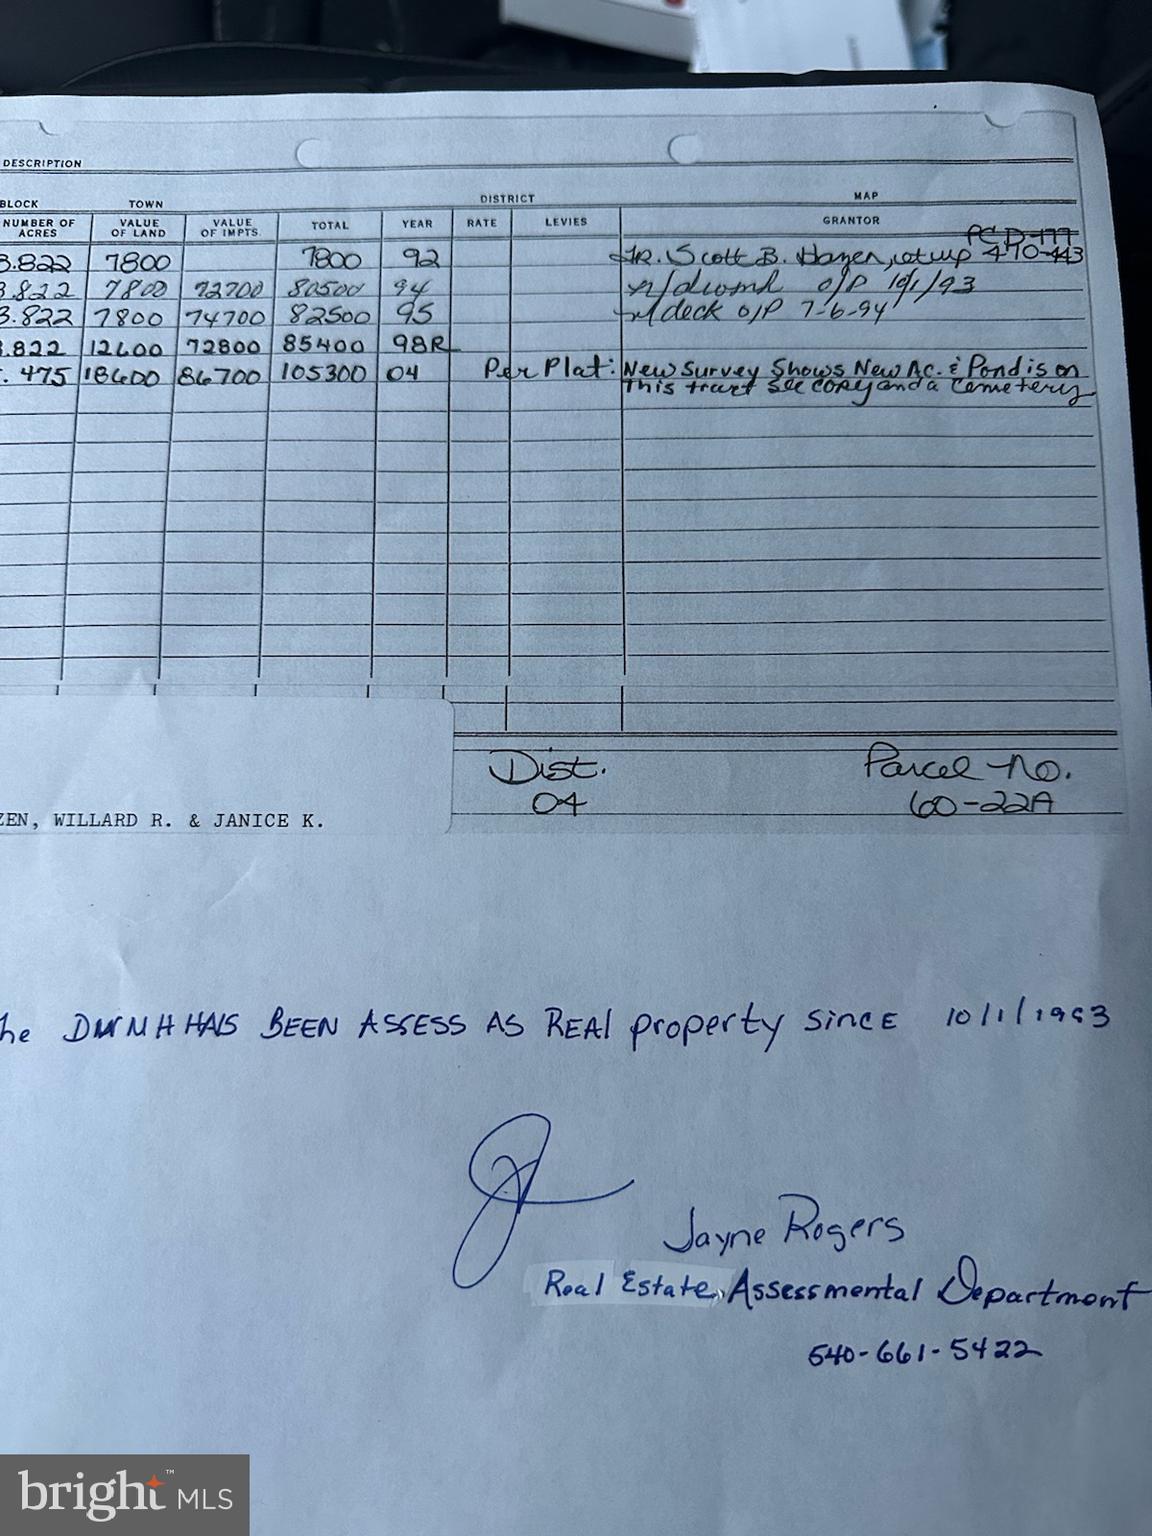 DESCRIPTION
BLOCK TOWN DISTRICT MAP
NUMBER OF ACRES VALUE OF LAND VALUE OF IMPTS. TOTAL YEAR RATE LEVIES GRANTOR
3.822 7800 7800 92 Fr. Scott B. 470-443
3.822 7800 72700 80500 94 o/p 10/1/93
3.822 7800 74700 82500 95 w/deck o/p 7-6-94
.822 12600 72800 85400 98R
. 475 18600 86700 105300 04 Per Plat: New Survey Shows New Ac. & Pond is on
This tract See copy and a Cemetery
Dist. Parcel No.
04 60-22A
ZEN, WILLARD R. & JANICE K.
he DWMH HAS BEEN ASSESS AS REAl property since 10/1/1993
Jayne Rogers
Real Estate Assessmental Department
540-661-5422
bright™ MLS